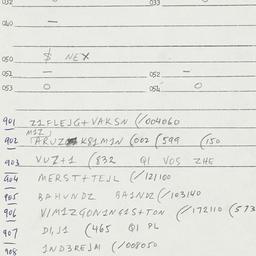 032 033
040 —
050 $ NEX
051 — 052 —
053 0 054 0
901 Z1FLEJG+VAKSN (/004060
M1Z)
902 (002 (599 (150
903 VUZ+1 (832 Q1 VOS ZHE
904 MERST+TEJL (/121100
905 BAHUNDZ BA1NDZ (/103140
906 V1M1ZGON1NG1S+TON (/172110 (573
907 (465 Q1 PL
908 1ND3REJM (/008050